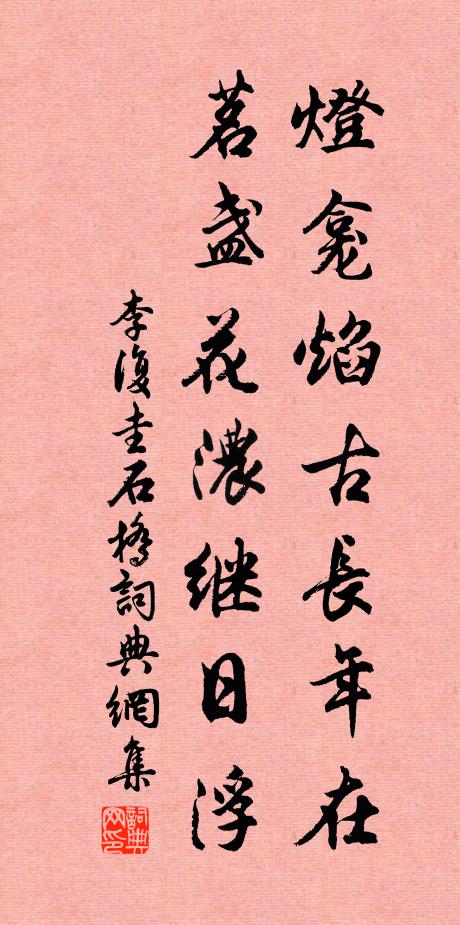 燈龕焰古長年在
茗盞花濃继日浮
李復圭石橋詞典網集
詞典网印